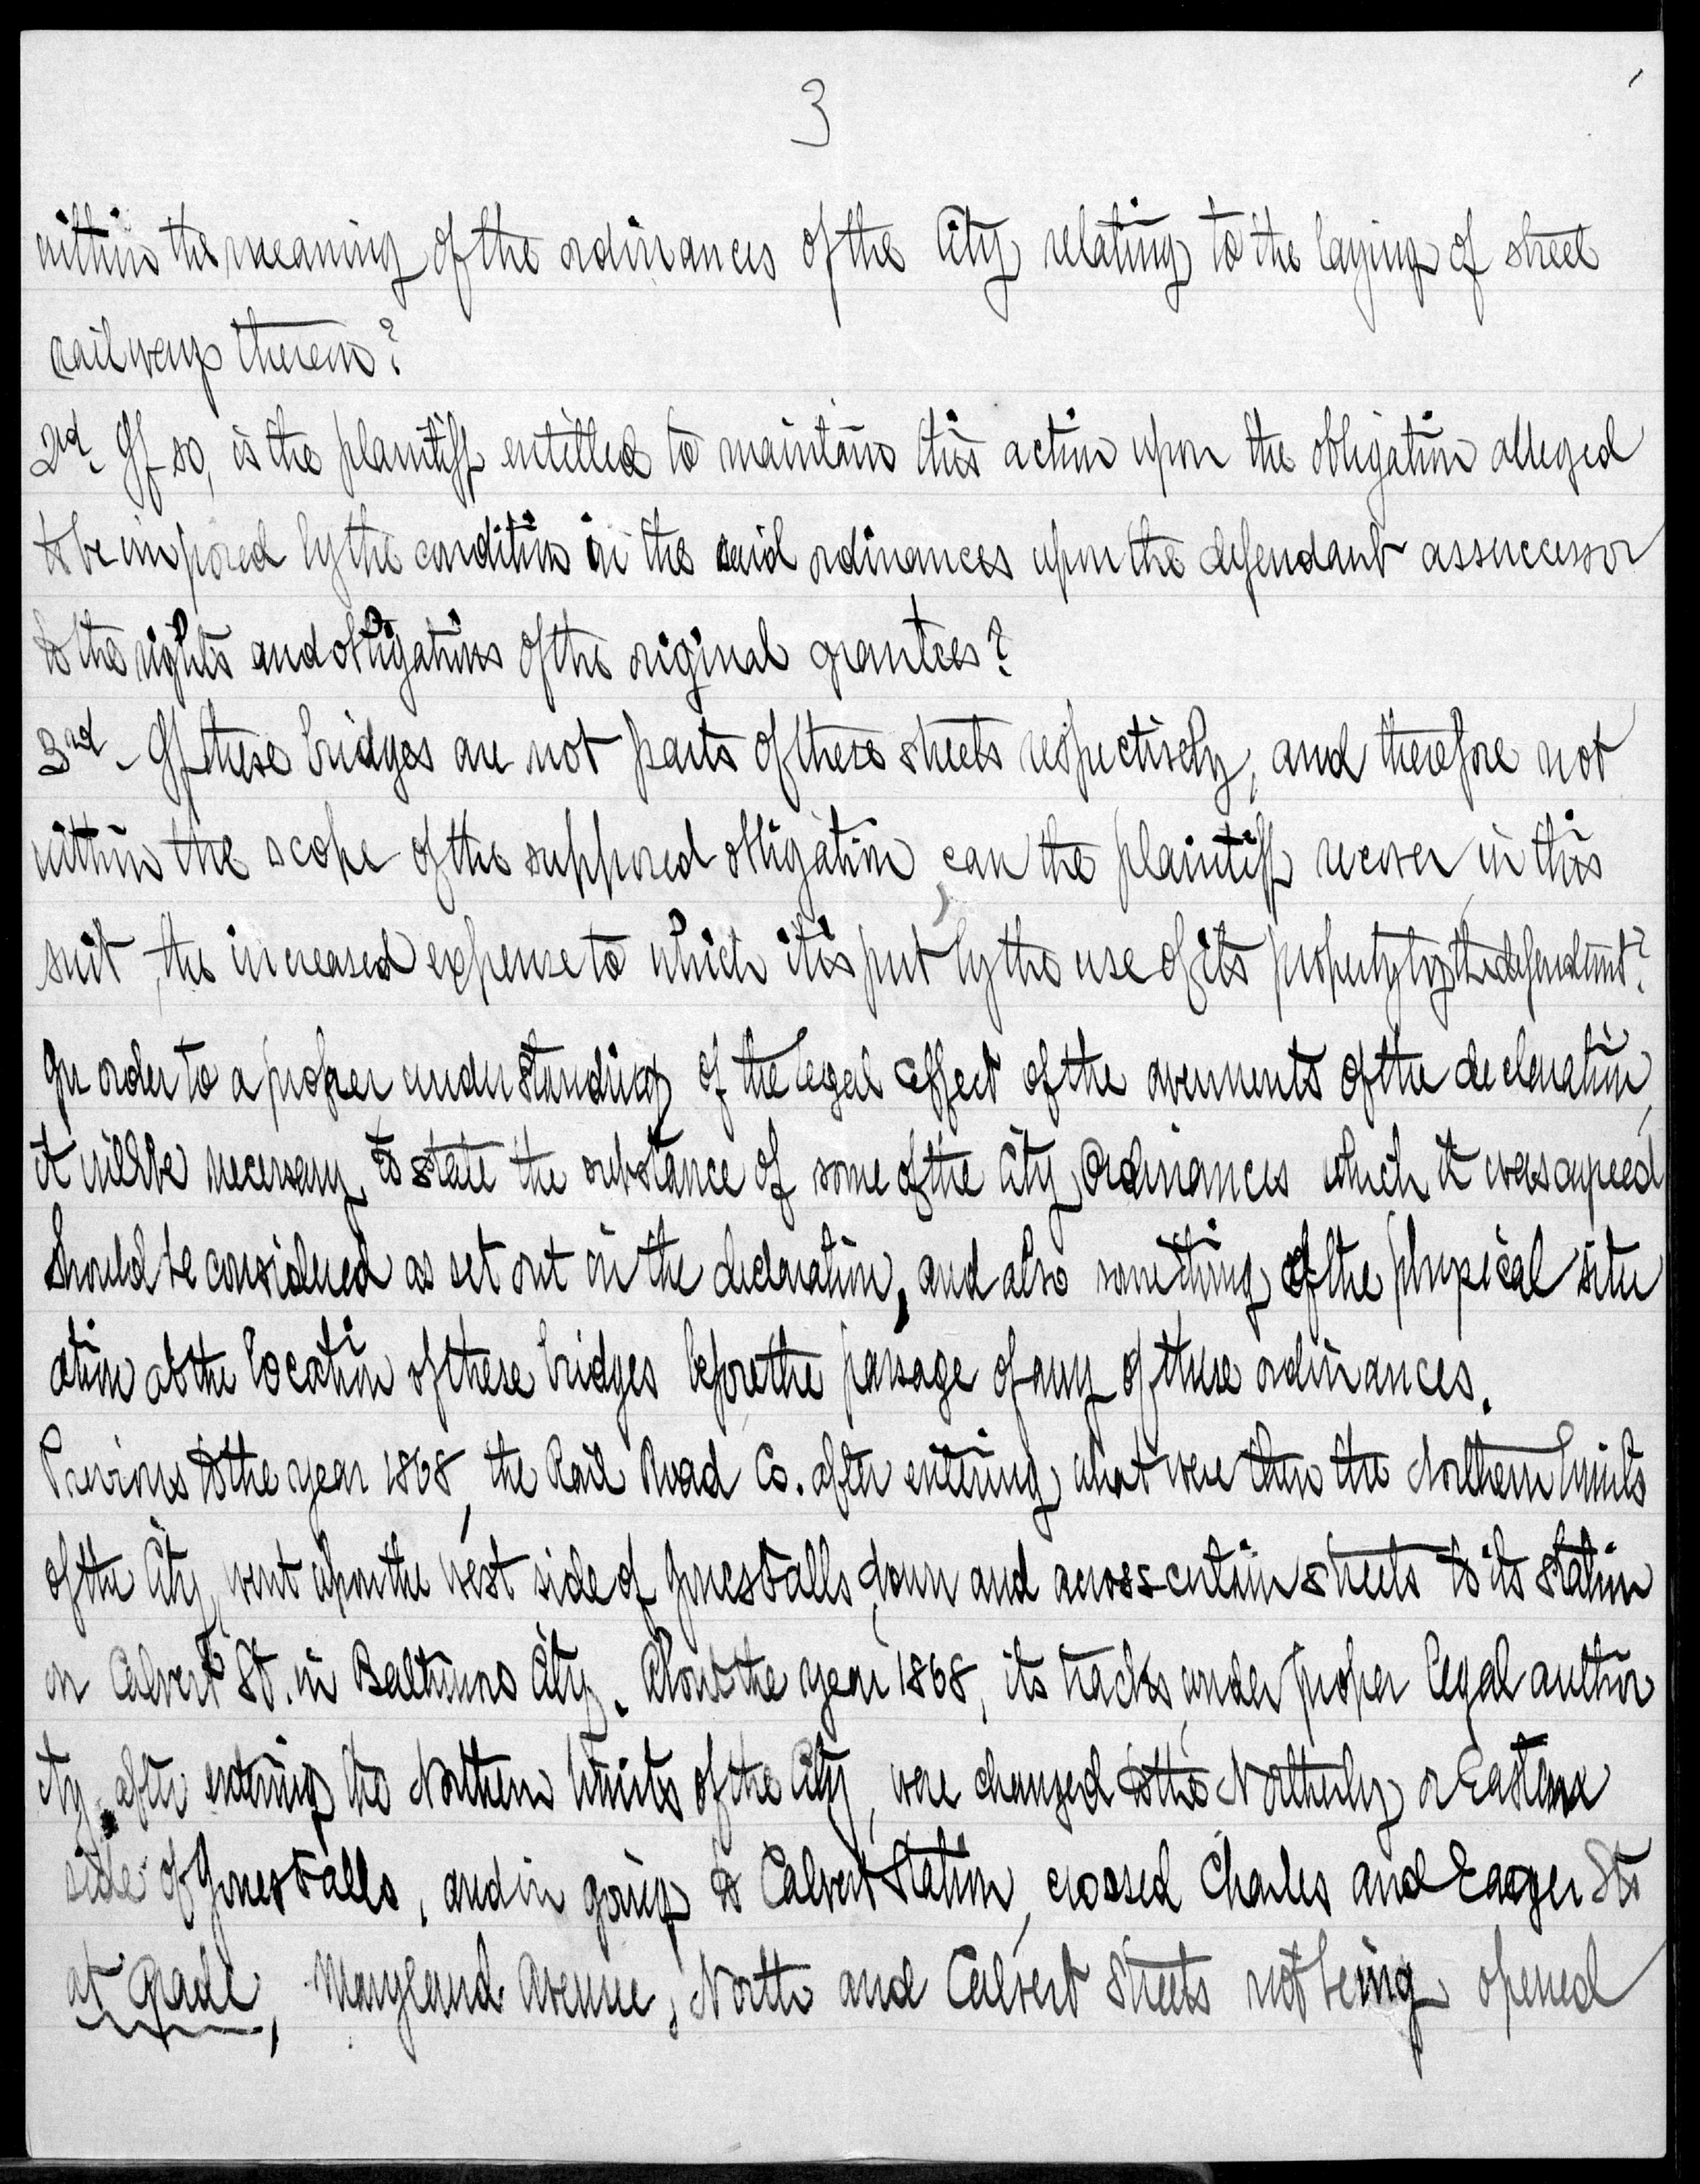 3
within the meaning of the ordinances of the City relating to the laying of street
railways therein?
2nd. If so, is the plaintiff entitled to maintain this action upon the obligation alleged
to be imposed by the condition in the said ordinances upon the defendant as successor
to the rights and obligations of the original grantees?
3rd. If these bridges are not parts of these streets respectively, and therefore not
within the scope of the supposed obligation, can the plaintiff recover in this
suit, the increased expense to which it is put by the use of its property by the defendant?
In order to a proper understanding of the legal effect of the averments of the declaration,
it will be necessary to state the substance of some of the City Ordinances which it was agreed
should be considered as set out in the declaration, and also something of the physical situ
ation at the location of these bridges before the passage of any of these ordinances.
Previous to the year 1868, the Rail Road Co. after entering what were then the Northern limits
of the City, went upon the west side of Jones Falls, down and across certain streets to its station
on Calvert St. in Baltimore City. About the year 1868, its tracks, under proper legal author
ity, after entering the Northern limits of the City, were changed to the Northerly or Eastern
side of Jones Falls, and in going to Calvert Station, crossed Charles and Eager Sts
at grade, Maryland Avenue, North and Calvert Streets not being opened